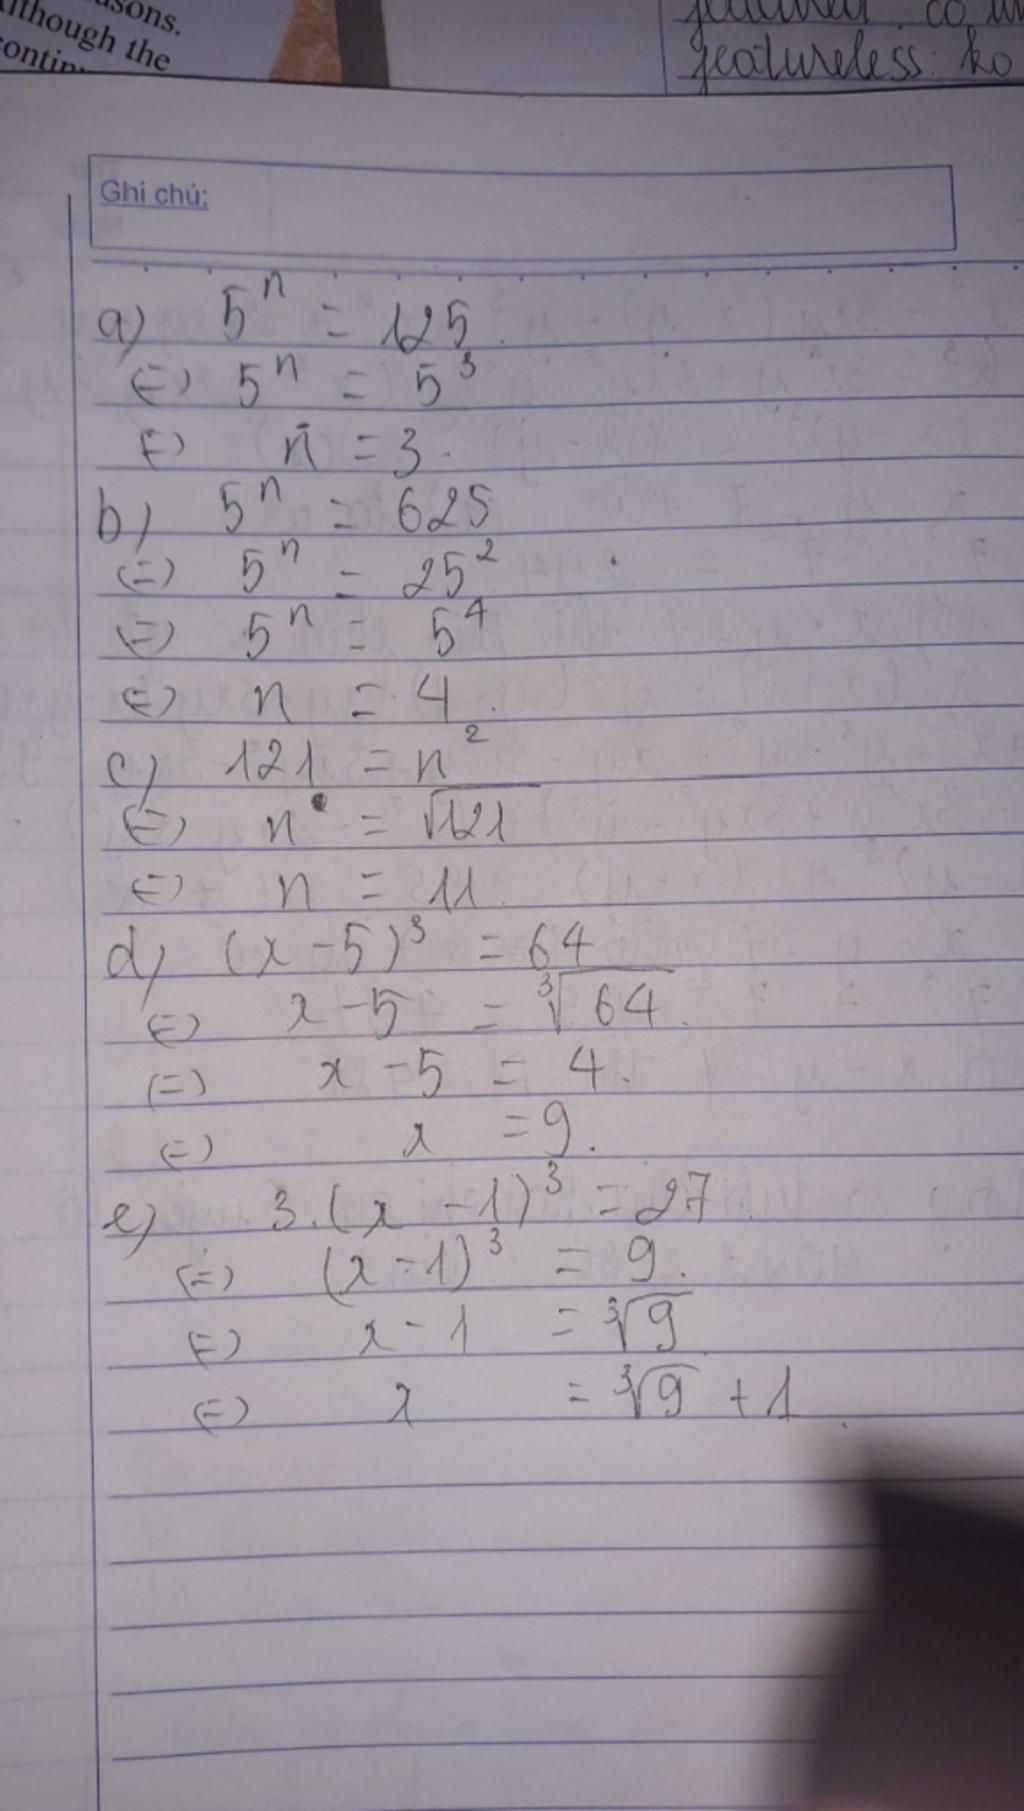 sons.
lthough the
featureless: ko
Ghi chú:
a) 5^n = 125
(=) 5^n = 5^3
(=) n = 3.
b) 5^n = 625
(=) 5^n = 25^2
(=) 5^n = 5^4
(=) n = 4.
c) 121 = n^2
(=) n = √121
(=) n = 11.
d) (x - 5)^3 = 64
(=) x - 5 = ∛64.
(=) x - 5 = 4.
(=) x = 9.
e) 3.(x - 1)^3 = 27
(=) (x - 1)^3 = 9.
(=) x - 1 = ∛9
(=) x = ∛9 + 1